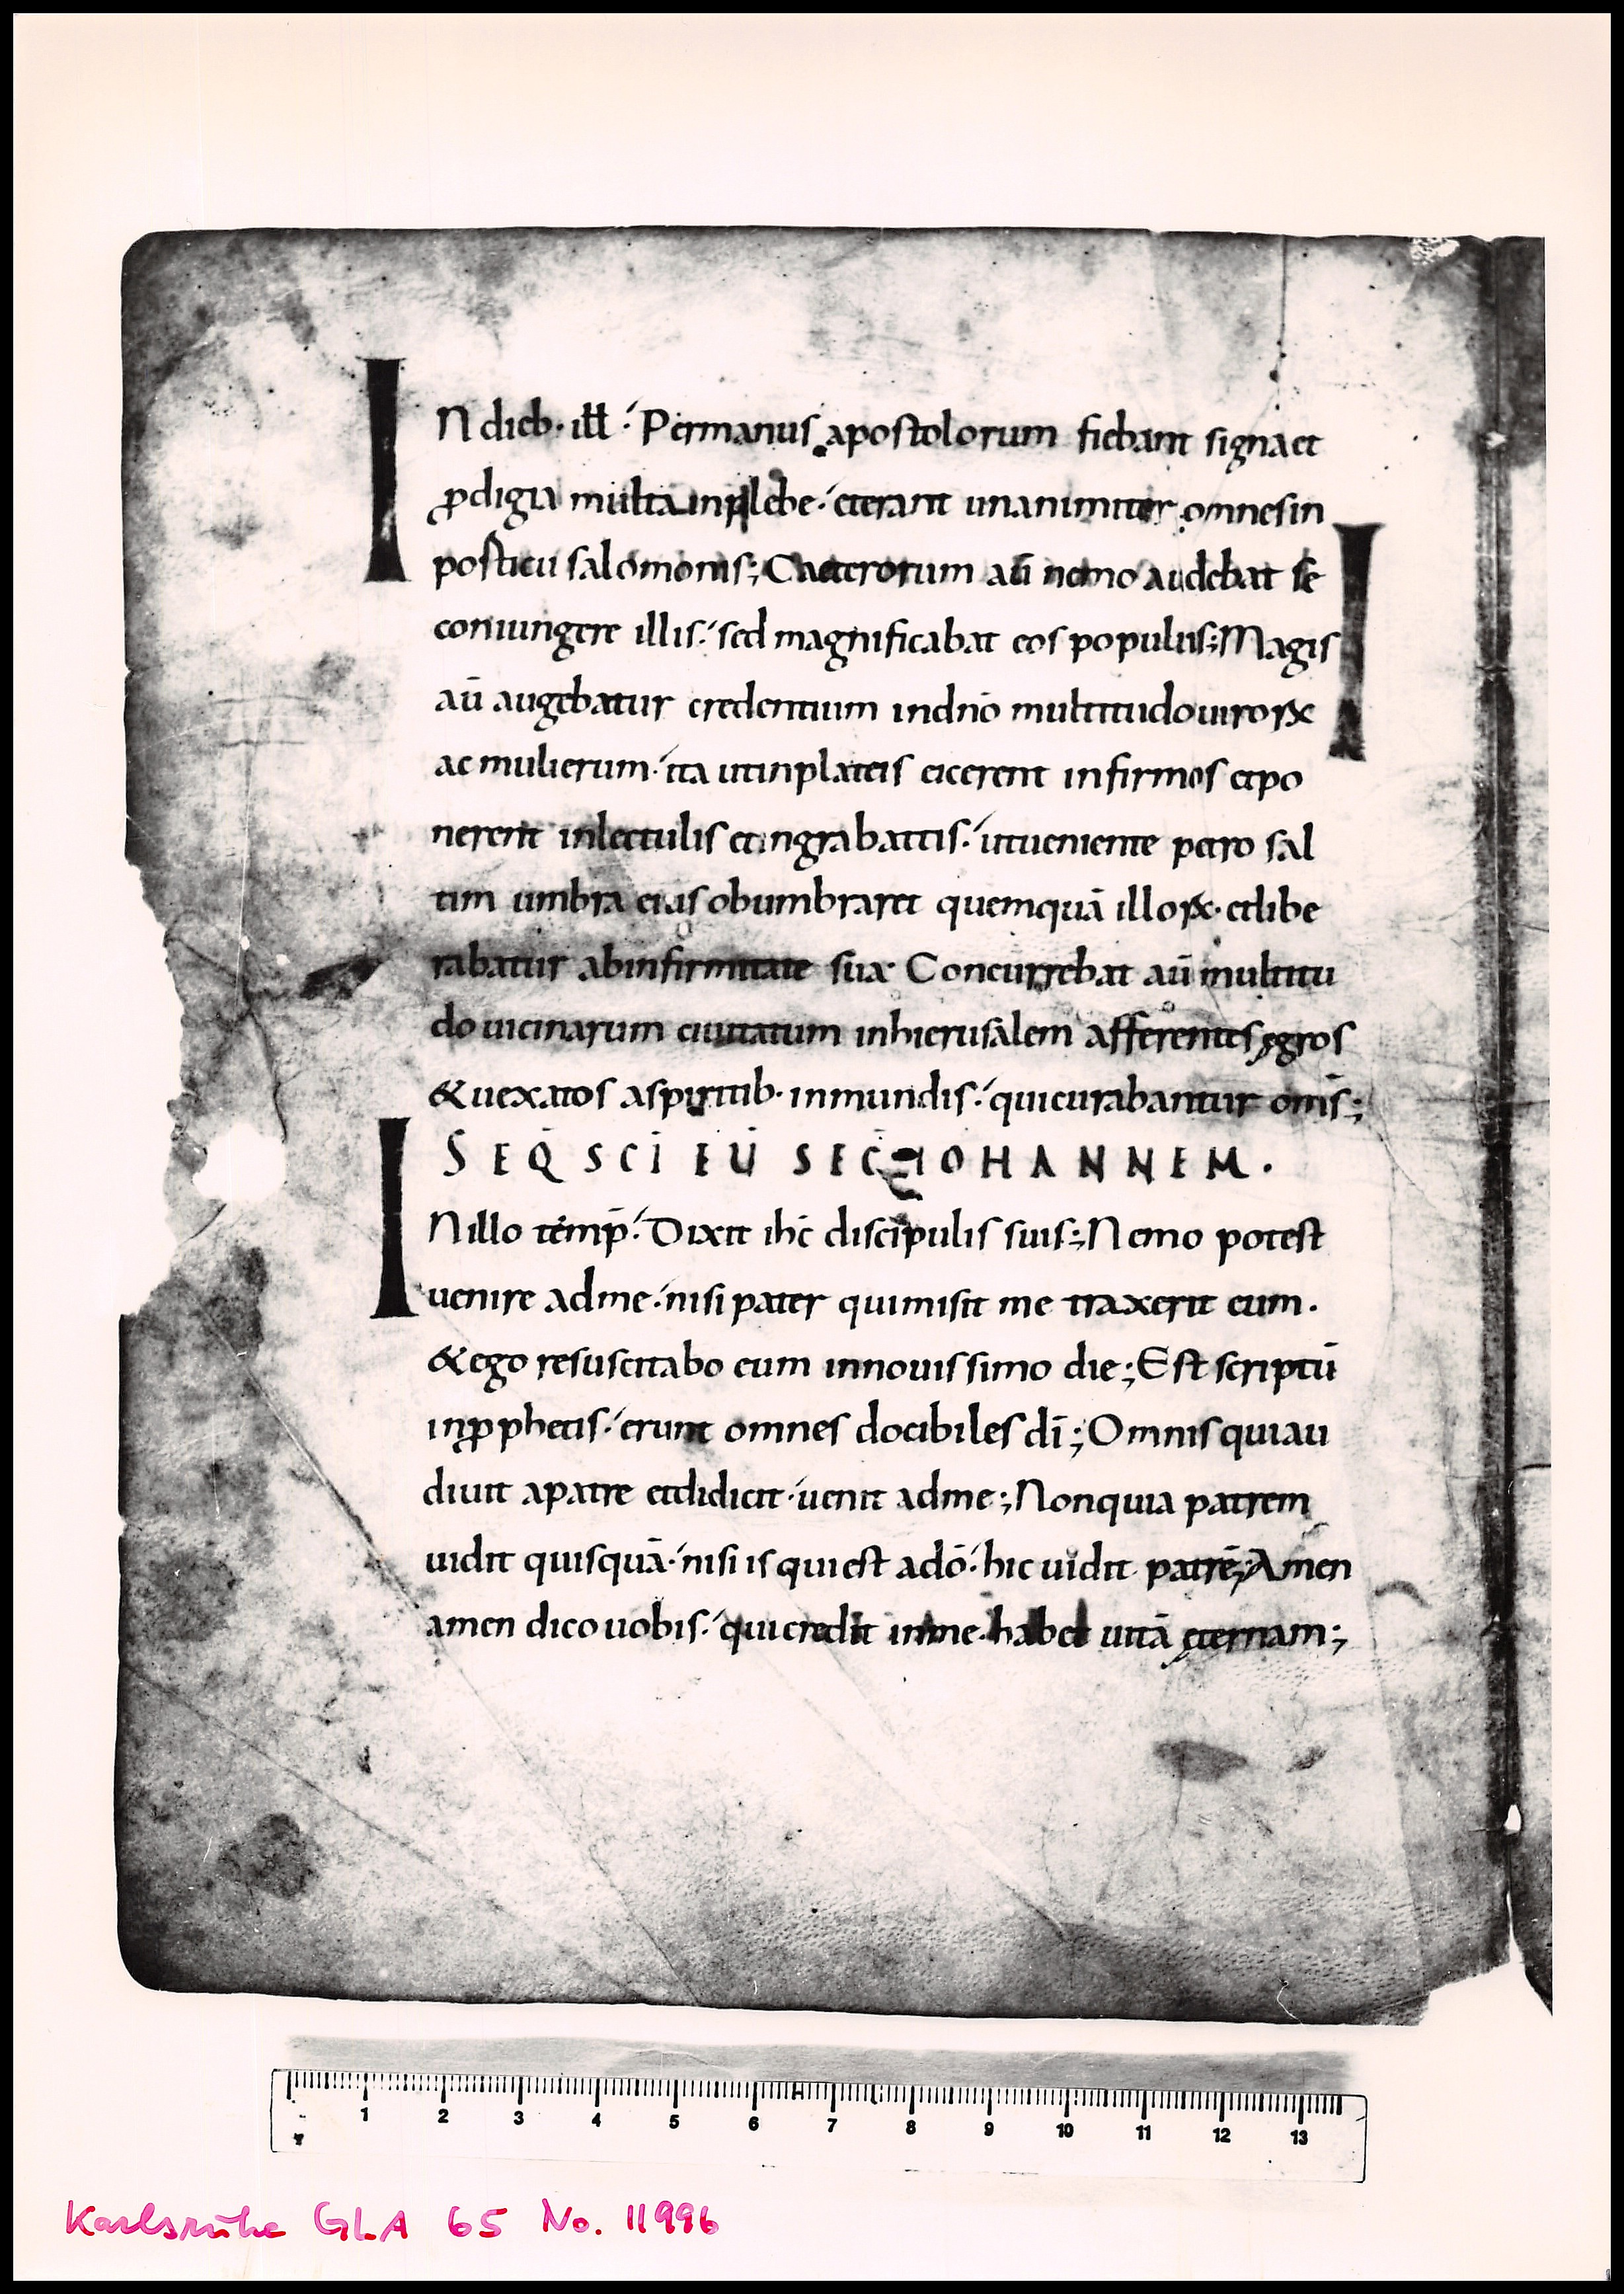 IN dieb· ill̅ ·́ Per manus apostolorum fiebant signa et
ꝓdigia multa in plebe ·́ et erant unanimiter omnes in
posticu salomonis ; Caeterorum au̅ nemo audebat se
coniungere illis ·́ sed magnificabat eos populus ; Magis
au̅ augebatur credentium in dn̅o multitudo uiroꝝ
ac mulierum ·́ ita ut in plateis eicerent infirmos et po
nerent in lectulis et in grabattis ·́ ut ueniente petro sal
tim umbra eius obumbraret quemqua̅ illoꝝ· et libe
rabatur ab infirmitate sua· Concurrebat au̅ multitu
do uicinarum ciuitatum in hierusalem afferentes ęgros
& uexatos a spiritib· inmundis ·́ qui curabantur om̅s ;
SEQ̅ SC̅I EU̅ SEC̅ IOHANNEM·
IN illo temp̅ ·́ Dixit ih̅c discipulis suis ; Nemo potest
uenire ad me ·́ nisi pater qui misit me traxerit eum·
& ego resuscitabo eum in nouissimo die ; Est scriptu̅
in ꝓphetis ·́ erunt omnes docibiles dī ; Omnis qui au
diuit a patre et didicit ·́ uenit ad me ; Non quia patrem
uidit quisqua̅ ·́ nisi is qui est a do̅ ·́ hic uidit patre̅ ; Amen
amen dico uobis ·́ qui credit in me· habet uita̅ ęternam ;
1 2 3 4 5 6 7 8 9 10 11 12 13
Karlsruhe GLA 65 No. 11996